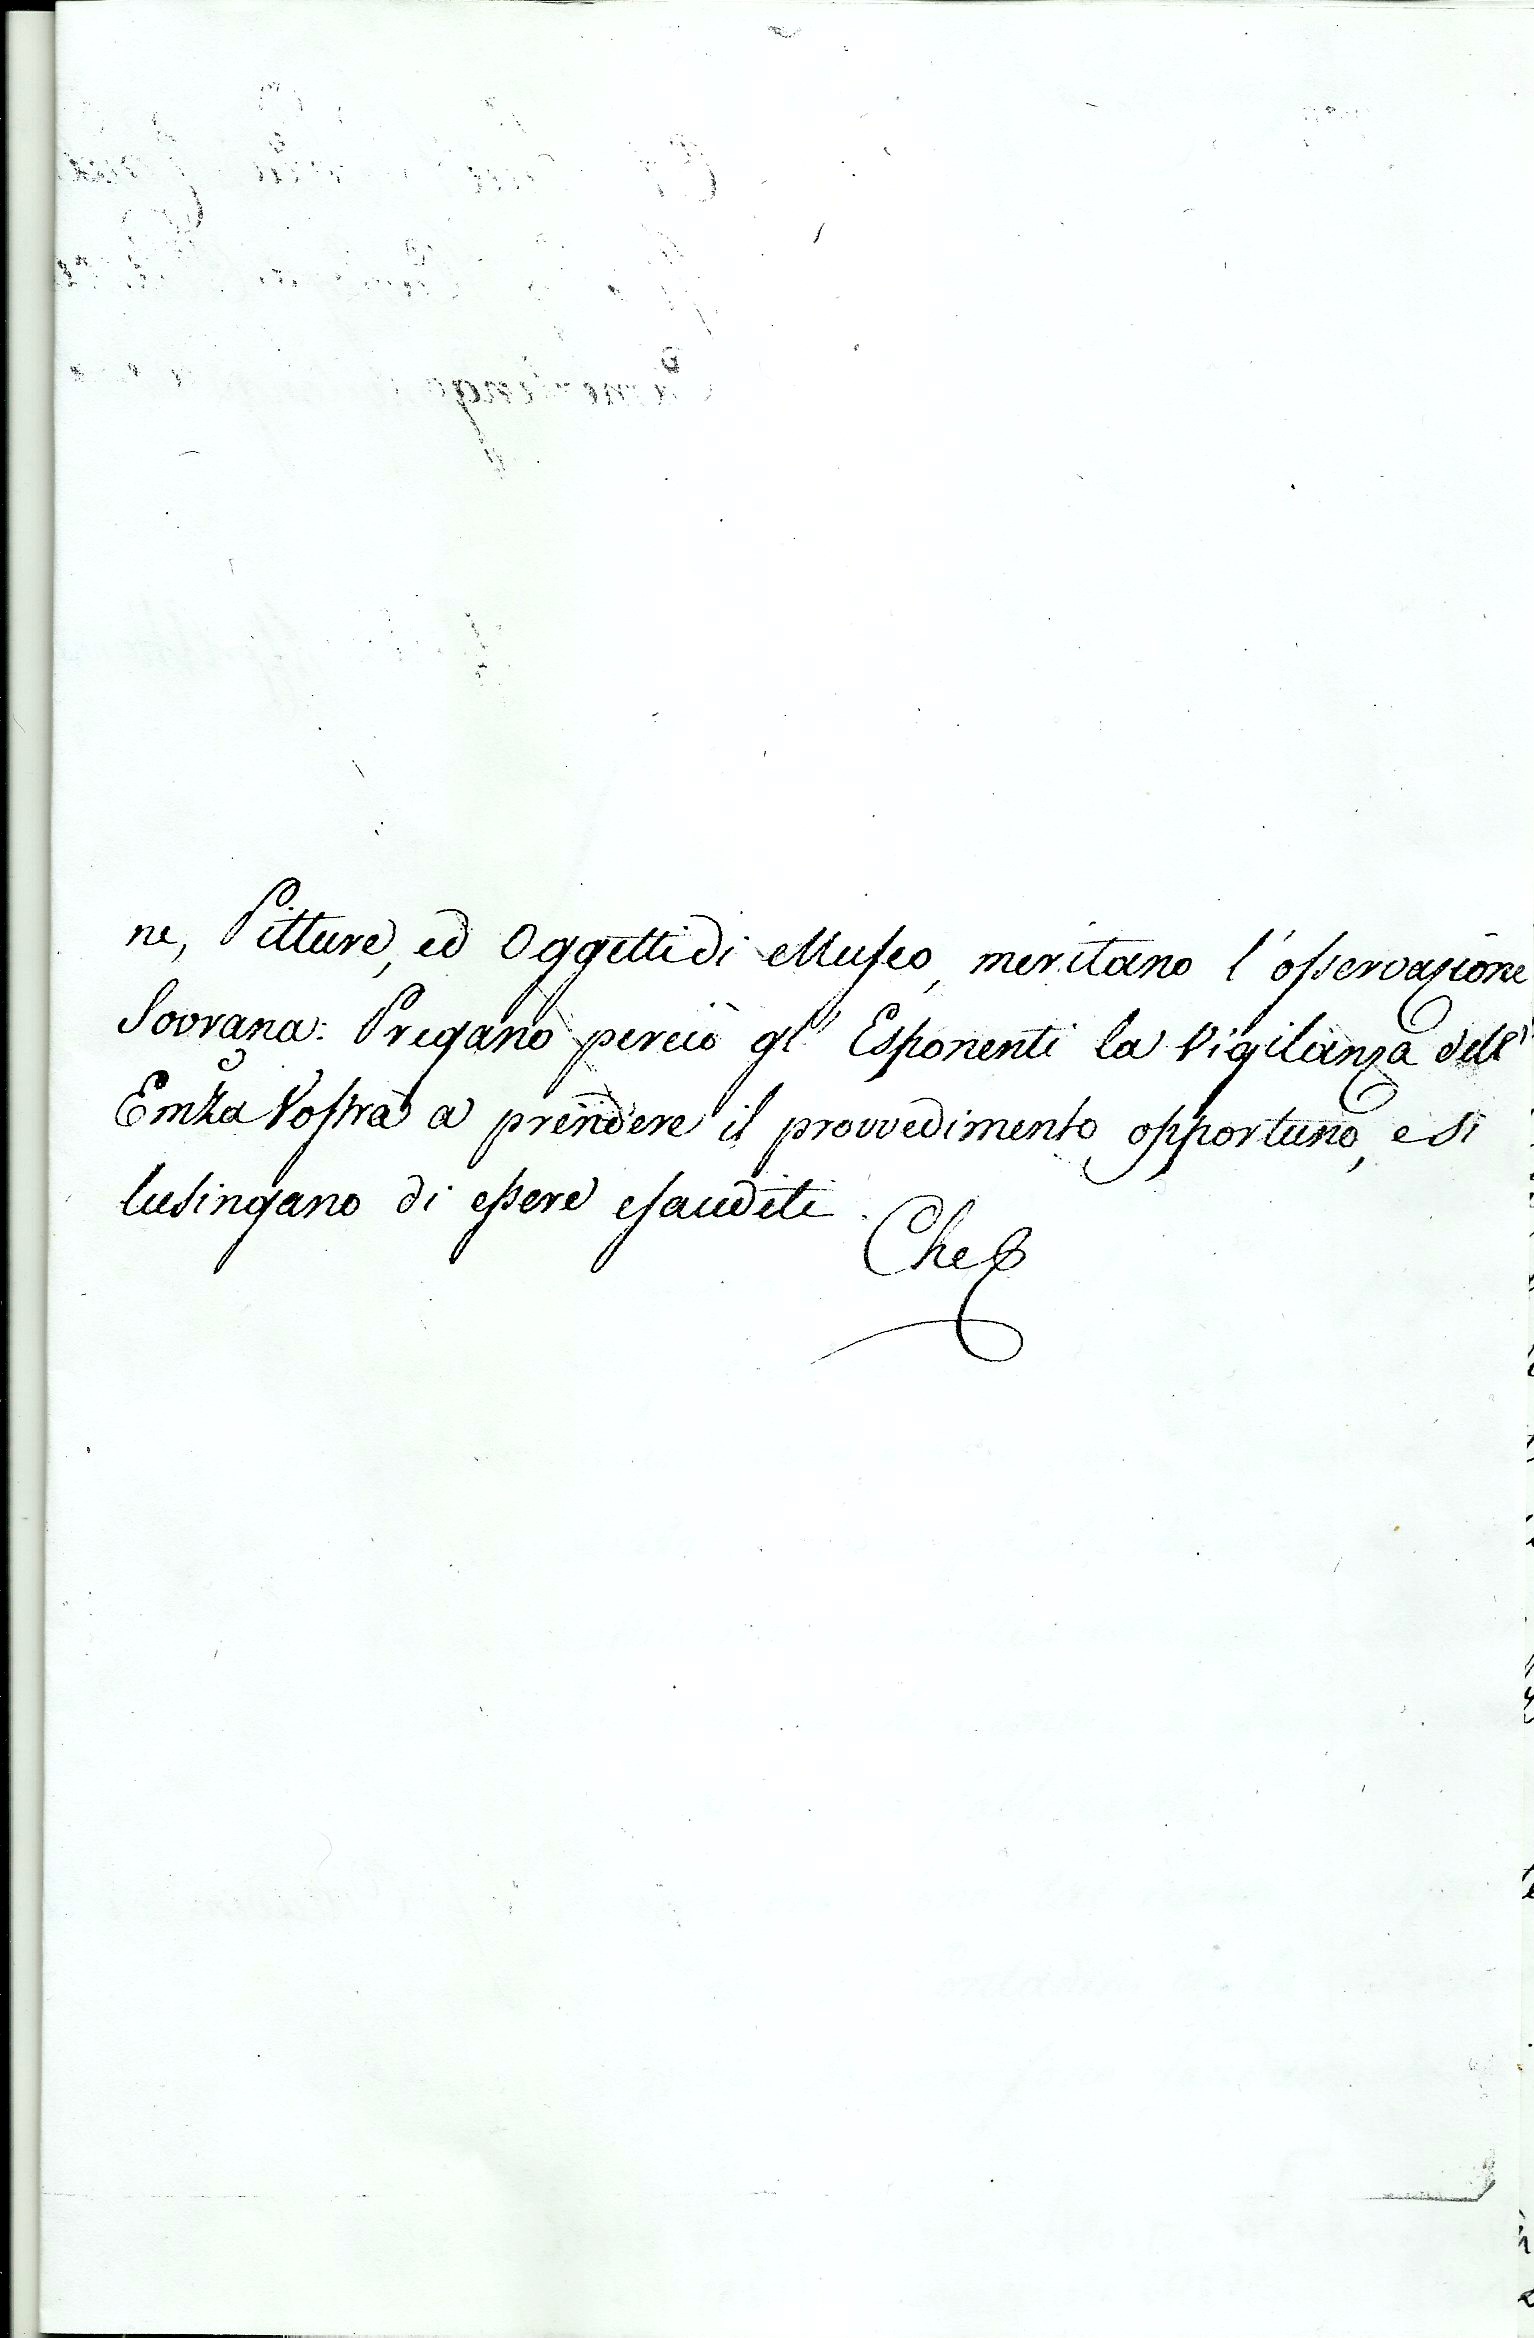 ne, Pitture, ed Oggetti di Museo, meritano l'osservazione
Sovrana: Pregano perciò gl' Esponenti la Vigilanza dell'
Emza Vostra a prendere il provvedimento opportuno, e si
lusingano di essere esauditi.
Che